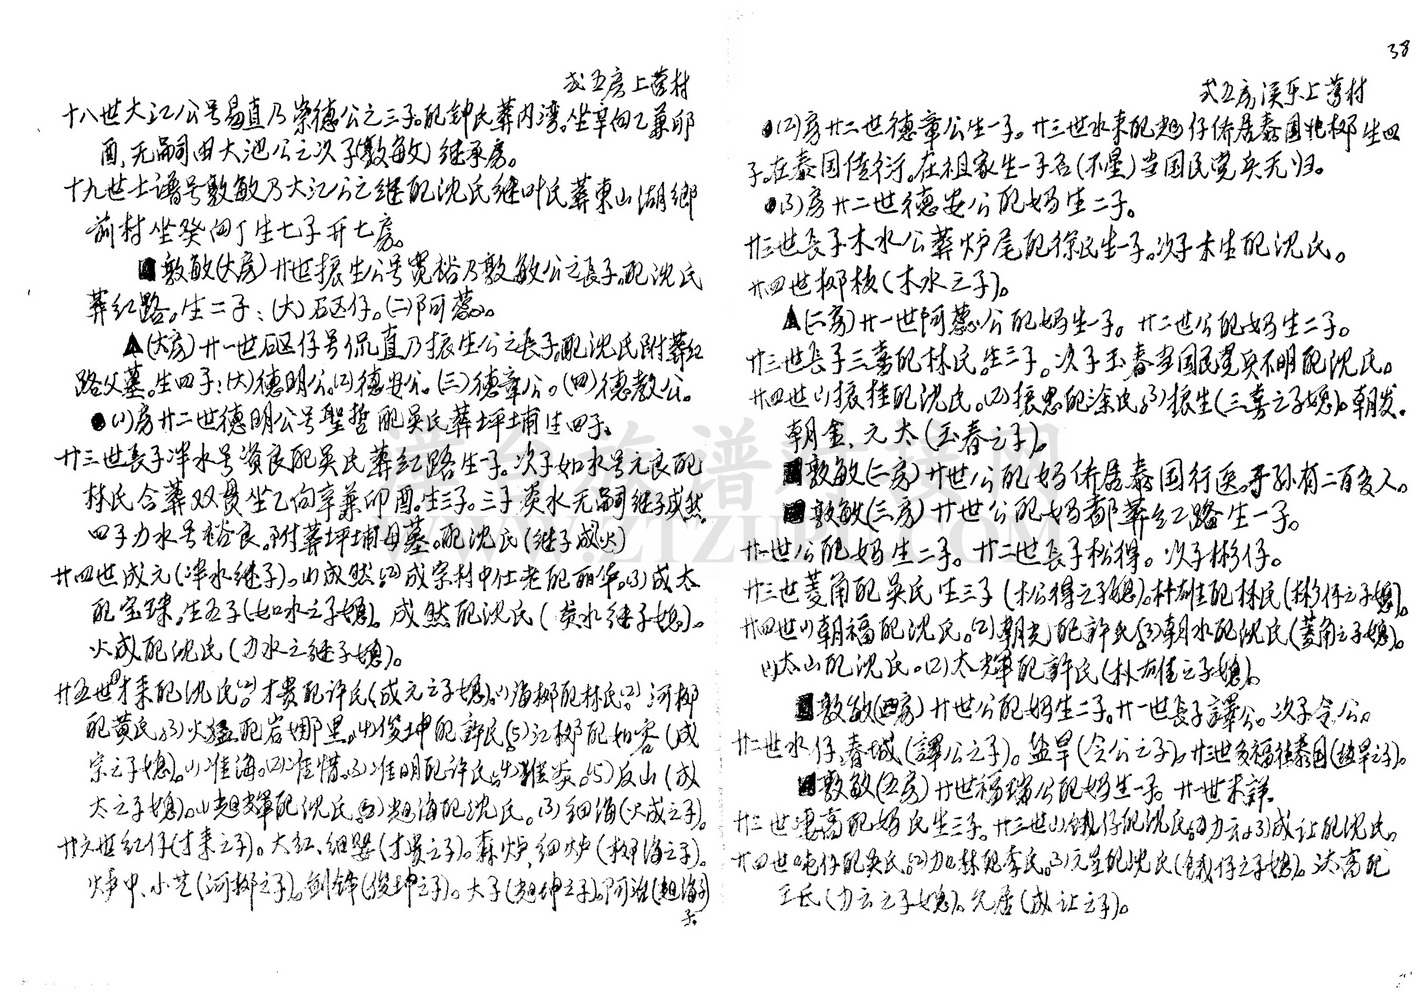 式五房上营村
十八世大江公号易直乃崇德公之三子。配钟氏葬内湾。坐辛向乙兼卯
酉，无嗣由大池公之次子(敦敏)继承房。
十九世士谱号敦敏乃大江公之继配沈氏继叶氏葬東山湖鄉
前村坐癸向丁生七子开七房。
敦敏(大房)廿世振生公号宽裕乃敦敏公之長子。配沈氏
葬红路。生二子：(大)石区仔。(二)阿蕊。
(大房)廿一世石区仔号侃直乃振生公之長子。配沈氏附葬红
路父墓。生四子：(大)德明公。(2)德安公。(三)德章公。(四)德教公。
(1)房廿二世德明公号聖哲配吴氏葬坪埔生四子。
廿三世長子泮水号资良配吴氏葬红路生一子。次子如水号元良配
林氏合葬双坐乙向辛兼卯酉。生三子。三子炎水无嗣继子成然。
四子力水号裕良。附葬坪埔母墓。配沈氏(继子成火)
廿四世成元(泮水继子)。(1)成然(2)成宗村中仕老配丽华。(3)成太
配宝珠。生五子(如水之子媳)。成然配沈氏(炎水继子媳)。
火成配沈氏(力水之继子媳)。
廿五世才来配沈氏。才贵配许氏(成元之子媳)。(1)海柳配林氏(2)河柳
配黄氏。(3)火猛配岩娜里。(4)俊坤配許氏(5)江柳配如容(成
宗之子媳)。(1)淮海。(2)淮惜。(3)淮明配许氏。(4)淮炎。(5)友山(成
太之子媳)。(1)赳輝配沈氏。(2)赳海配沈氏。(3)細海(火成之子)。
廿六世红仔(才来之子)。大红、细婴(才贵之子)。森炉、细炉(柳海之子)。
小芝(河柳之子)。剑锋(俊坤之子)。大子(赳坤之子)。阿淮(赳海子)
子。
38
式五房溪东上营村
(2)房廿二世德章公生一子。廿三世水来配赳仔侨居泰国北柳生四
子。在泰国传衍。在祖家生一子名(不星)当国民党兵无归。
(3)房廿二世德安公配妈生二子。
廿三世長子木水公葬炉尾配徐氏生一子。次子木生配沈氏。
廿四世柳枝(木水之子)。
(二房)廿一世阿蕊公配妈生一子。廿二世公配妈生二子。
廿三世長子三喜配林氏。生三子。次子玉春当国民党兵不明配沈氏。
廿四世(1)振桂配沈氏。(2)振忠配涂氏。(3)振生(三喜之子媳)。朝发。
朝金、元太(玉春之子)。
敦敏(二房)廿世公配妈侨居泰国行医。子孙有二百多人。
敦敏(三房)廿世公配妈都葬红路生一子。
廿一世公配妈生二子。廿二世長子松得。次子彬仔。
廿三世菱角配吴氏生三子(松得之子媳)。朴雄配林氏(彬仔之子媳)。
廿四世(1)朝福配沈氏。(2)朝光配許氏(3)朝水配沈氏(菱角之子媳)。
(1)太山配沈氏。(2)太輝配許氏(朴雄之子媳)。
敦敏(四房)廿世公配妈生二子。廿一世長子譯公。次子令公。
廿二世水仔、春城(譯公之子)。盐旱(令公之子)。廿三世多福往泰国(盐旱之子)。
敦敏(五房)廿世福瑞公配妈生一子。廿一世未詳。
廿二世高配妈氏生三子。廿三世(1)饿仔配沈氏(2)力云。(3)成让配沈氏。
廿四世屯仔配吴氏。(2)力林配李氏。(3)元呈配沈氏(饿仔之子媳)。沃高配
王氏(力云之子媳)。允居(成让之子)。